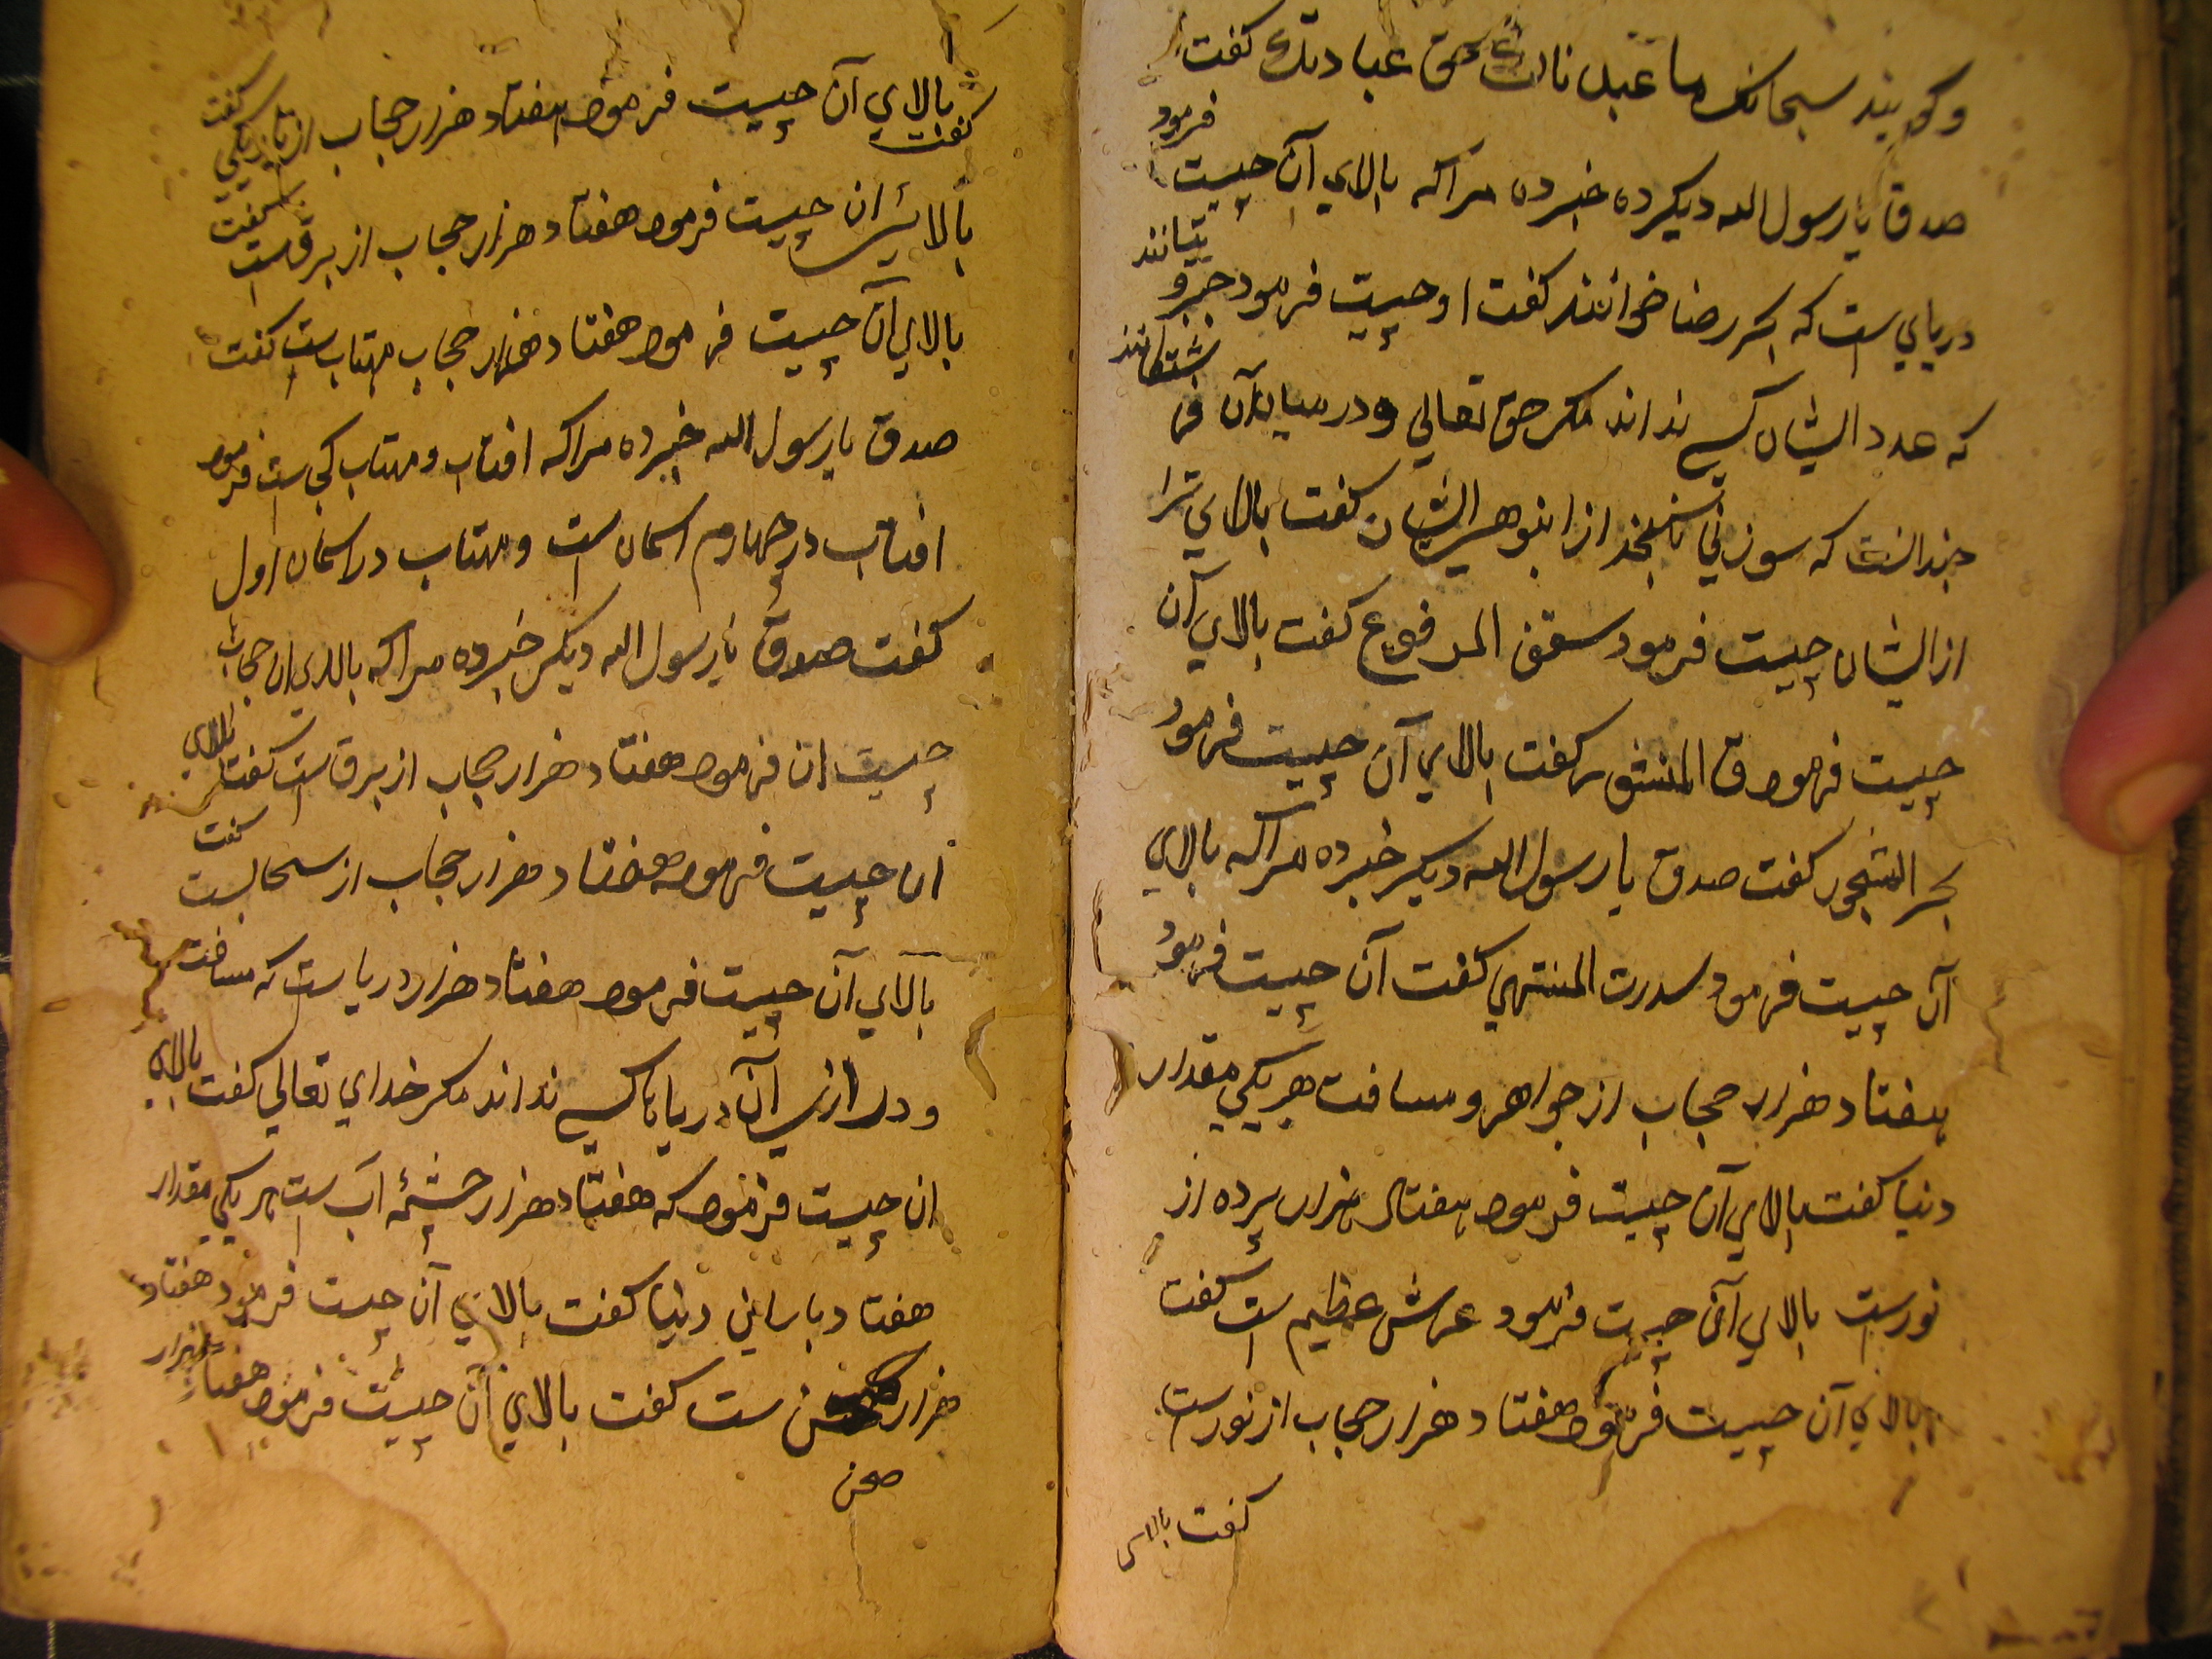 و گویند سبحانک ما عبدناک حق عبادتک گفت
صدق یا رسول الله دیگر ده خبر ده مرا که بالای آن چیست فرمود
دریایی است که بحر رضا خوانند گفت او چیست فرمود
که عدد ایشان کسی نداند مگر حق تعالی و در میان آن
چندانست که سوزنی نگنجد از انبوهی ایشان گفت بالای
از ایشان چیست فرمود سقف المرفوع گفت بالای آن
چیست فرمود ق المنشور گفت بالای آن چیست فرمود
بحر المسجور گفت صدق یا رسول الله دیگر خبر ده مرا که بالای
آن چیست فرمود سدرت المنتهی گفت آن چیست فرمود
هفتاد هزار حجاب از جواهر و مسافت هر یکی مقدار
دنیا گفت بالای آن چیست فرمود هفتاد هزار پرده از
نورست بالای آن چیست فرمود عرش عظیم است گفت
بالای آن چیست فرمود هفتاد هزار حجاب از نورست
گفت بالای
گفت بالای آن چیست فرمود هفتاد هزار حجاب از تاریکی گفت
بالای آن چیست فرمود هفتاد هزار حجاب از برقست گفت
بالای آن چیست فرمود هفتاد هزار حجاب مهتاب ست گفت
صدق یا رسول الله خبر ده مرا که افتاب و مهتاب کجاست فرمود
افتاب در چهارم اسمان است و مهتاب در اسمان اول
گفت صدق یا رسول الله دیگر خبر ده مرا که بالای ان حجاب
چیست ان فرمود هفتاد هزار حجاب از برق است گفت بالای
ان چیست فرمود هفتاد هزار حجاب از سحابست گفت
بالای آن چیست فرمود هفتاد هزار دریا ست که مسافت
و درازی آن دریاها کسی نداند مگر خدای تعالی گفت بالای
ان چیست فرمود که هفتاد هزار چشمهٔ اب ست هر یکی مقدار
هفتاد بار این دنیا گفت بالای آن چیست فرمود هفتاد
هزار صحن ست گفت بالای آن چیست فرمود هفتاد هزار
صحن